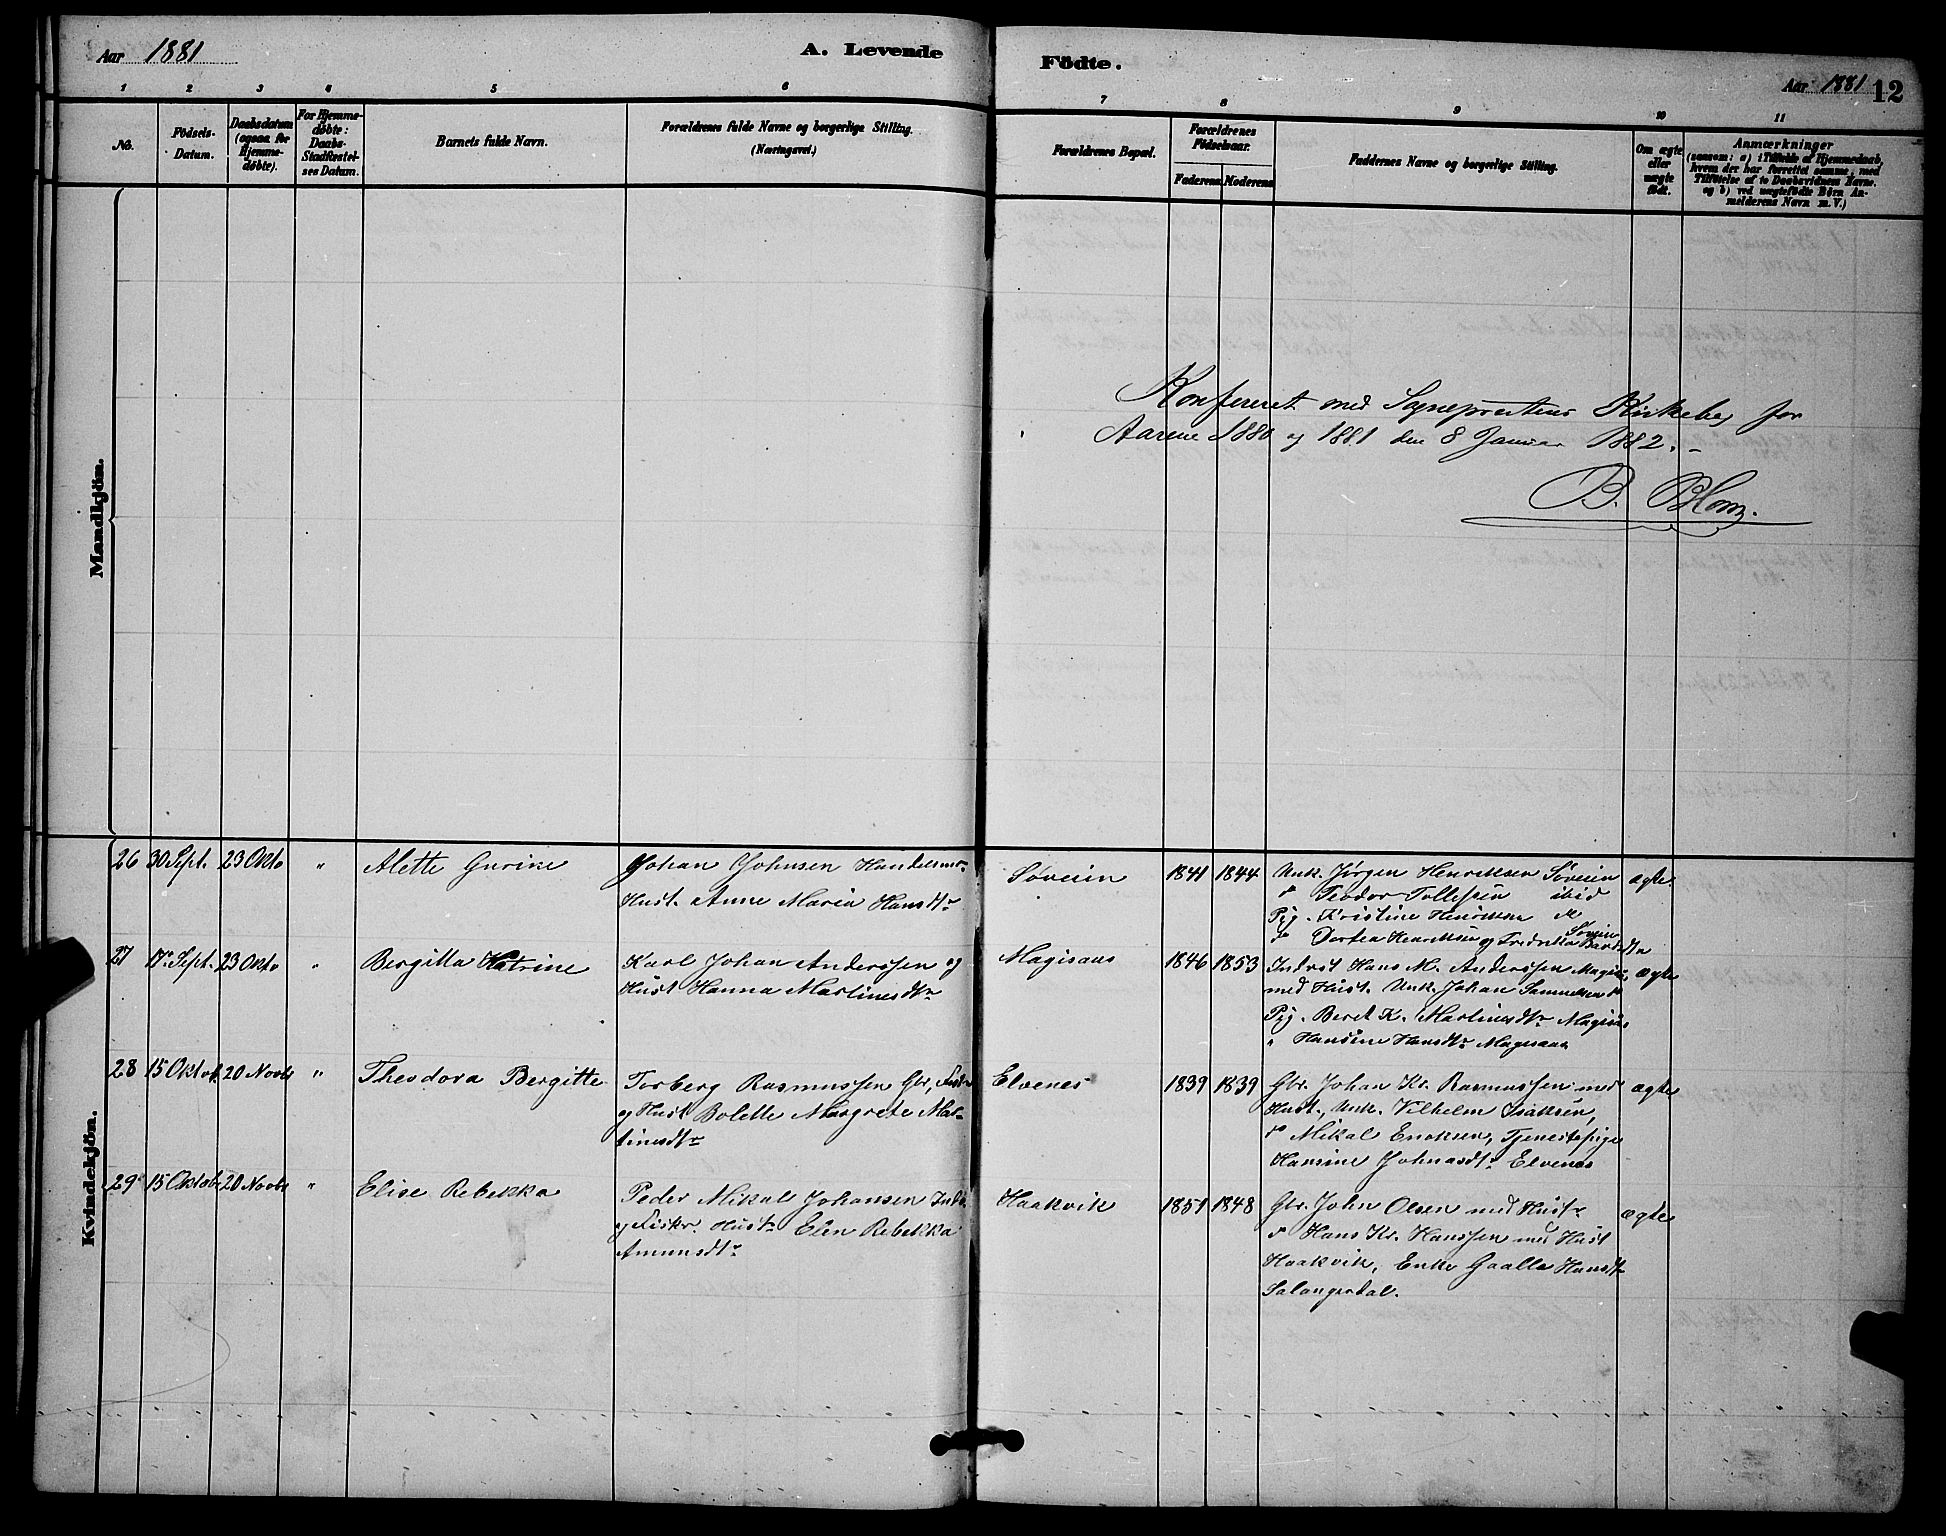 Aar 1881
A. Levende
Födte.
Aar 1881
12
1 2 3 4 5 6 7 8 9 10 11
No.
Födsels-Datum.
Daabsdatum (ogsaa for Hjemme-döbte).
For Hjemme-døbte: Daabs-Stadfæstel-ses Datum.
Barnets fulde Navn.
Forældrenes fulde Navne og borgerlige Stilling.
(Næringsvei.)
Forældrenes Bopæl.
Forældrenes Födselsaar.
Faderens. Moderens.
Faddernes Navne og borgerlige Stilling.
Om ægte eller uægte født.
Anmærkninger
(saasom: a) i Tilfælde af Hjemmedaab,
hvem der har forrettet samme, med
Tilföielse af to Daabsvidners Navne.
og b) ved uægtefødte Börn An-
melderens Navn m. V.)
Mandkjön.
Konfereret med Sognepræstens Kirkebog for
Aarene 1880 og 1881 den 8 Januar 1882.
B. Blom.
Kvindekjön.
26 30 Sept. 23 Okto " Alette Gurine
Johan Johnsen Handelsm.
Hust. Anne Maria Hansdtr
Søveien 1841 1844
Unk. Jørgen Henriksen Søveien
do Teodor Tollefsen ibid
Pig. Kristine Henriksen
do Dortea Henriksen og Fredrikke
Søveien
ægte.
27 17 Sept. 23 Okto " Bergitta Katrine
Karl Johan Anderssen og
Hust Hanna Martinesdtr
Magisaas 1846 1853
Indrst Hans M. Anderssen
med Hust. Unk. Johan Samuelsen do
Pig. Beret K. Martinesdtr Magisaas
" Hansine Hansdtr Magisaas
ægte
28 15 Oktob. 20 Novbr " Theodora Bergitte
Torberg Rasmussen Gbr,
og Hust Bolette Margrete Mar-
tinesdtr
Elvenes 1839 1839
Gbr. Johan Kr. Rasmussen med
Hust., Unk. Vilhelm Isaksen,
do Mikal Enoksen, Tjenestepige
Hansine Johnasdtr Elvenes
ægte
29 15 Oktobr 20 Novbr " Elise Rebekka
Peder Mikal Johansen
og Fiskr. Hustr Elen Rebekka
Amundtr
Haakvik 1851 1848
Gbr. John Olsen med Hustr
do Hans Kr. Hanssen med Hust
Haakvik, Enke Gaalla Hansdtr
Salangsdal.
ægte